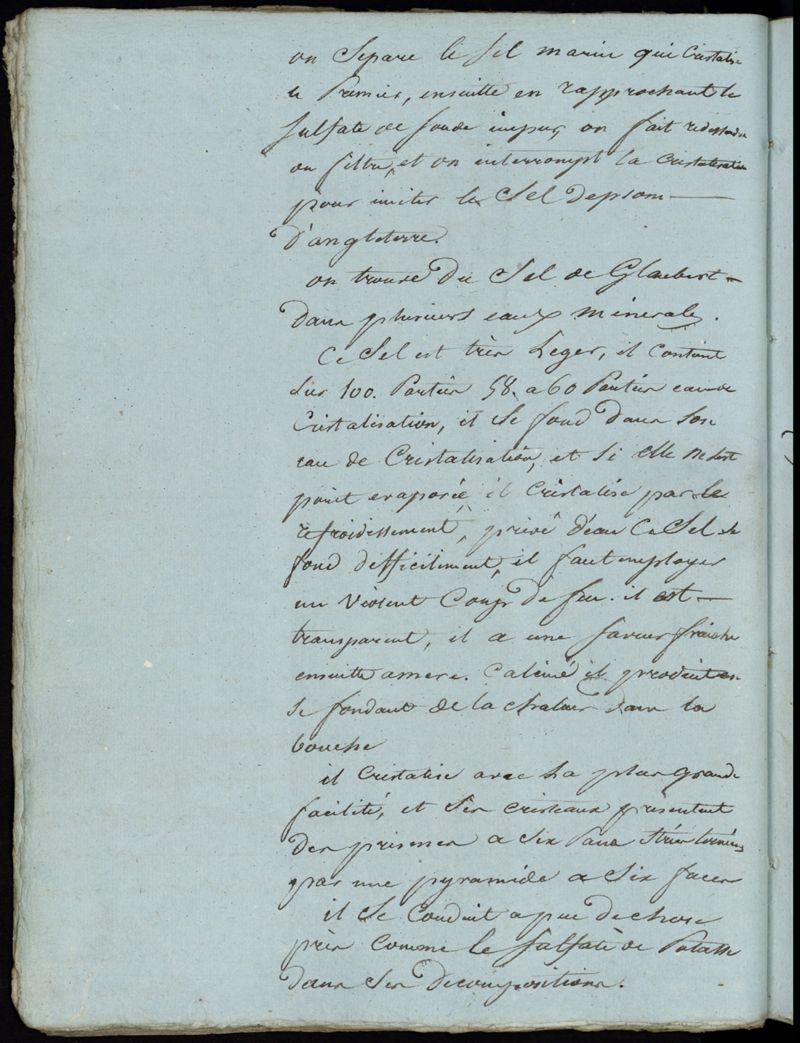 on separe le sel marin qui Cristalise
le Premier, ensuitte en rapprochant le
Sulfate de soude impur, on fait redissoudre
on filtre, et on interrompt la Cristalisation
pour imiter le Sel depsom
D'angleterre.
on trouve Du Sel de Glaubert
Dans plusieurs eaux minerales.
Ce Sel est très Leger, il Contient
Sur 100. Parties 58. a 60 Parties eau de
Cristalisation, il Se fond Dans Son
eau de Cristalisation, et Si elle n'est
point evaporée, il Cristalise par le
refroidissement, privé D'eau Ce Sel se
fond difficilement, il faut employer
un Violent Coup De feu. il est
transparent, il a une Saveur fraiche
ensuitte amere. Calciné il produit en
Se fondant de la chaleur dans la
bouche
il Cristalise avec La plus grande
facilité, et Ses cristeaux présentent
Des prismes a Six Pans Striés terminés
par une pyramide a Six faces
il Se Conduit a peu De chose
près Comme le Sulfate de Potasse
dans Ses Decompositions.